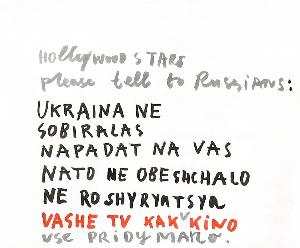 Hollywood STARS
please tell to Russians:
UKRAINA NE
SOBIRALAS
NAPADAT NA VAS
NATO NE OBESHCHALO
NE ROSHYRYATSYA
VASHE TV KAK V KINO
VSE PRIDYMANO.